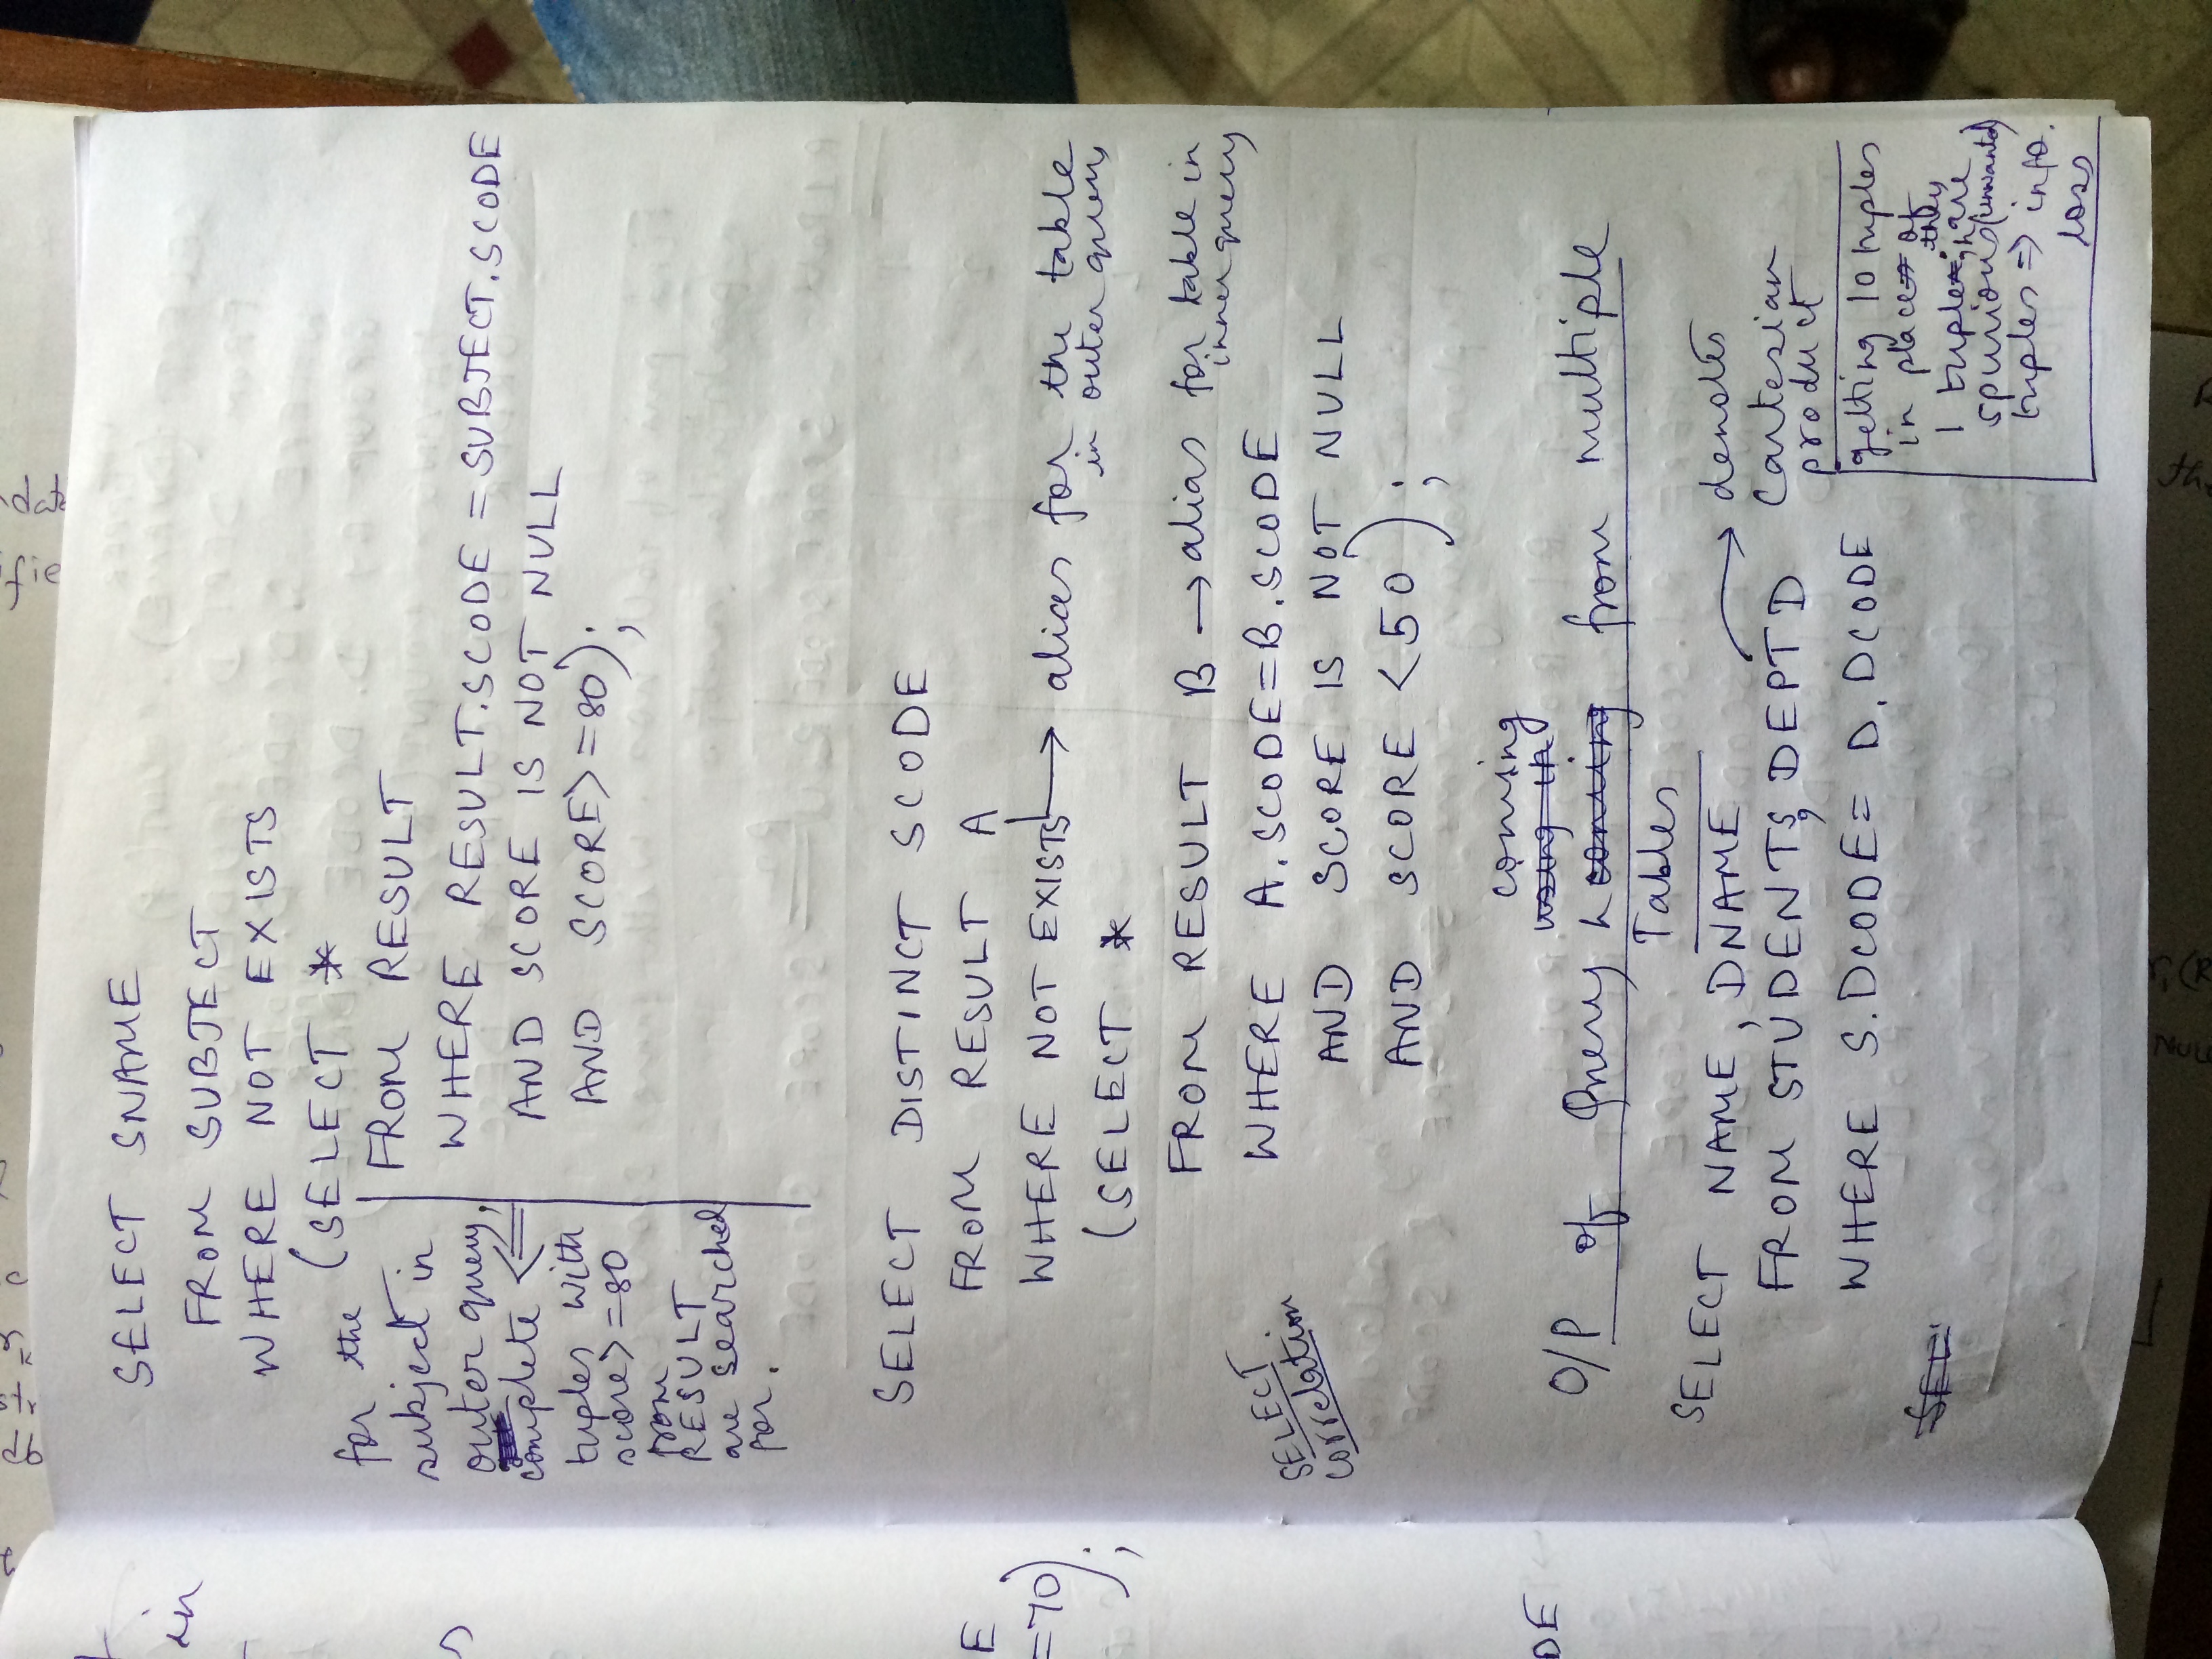 SELECT SNAME
FROM SUBJECT
WHERE NOT EXISTS
(SELECT *
FROM RESULT
WHERE RESULT.SCODE = SUBJECT.SCODE
AND SCORE IS NOT NULL
AND SCORE>=80);
for the
subject in
outer query,
complete <=
tuples with
score>=80
from
RESULT
are searched
for.
SELECT DISTINCT SCODE
FROM RESULT A
WHERE NOT EXISTS → alias for the table
in outer query
(SELECT *
FROM RESULT B → alias for table in
inner query
WHERE A.SCODE=B.SCODE
AND SCORE IS NOT NULL
AND SCORE <50);
SELECT
correlation
coming
using in
O/P of Query coming from multiple
Tables
SELECT NAME, DNAME → denotes
FROM STUDENT S, DEPT D Cartesian
product
WHERE S.DCODE= D.DCODE
SEL
getting 10 tuples
in place of
they
1 tuple; are
spurious (unwanted)
tuples => info.
loss
in
E
=70);
DE